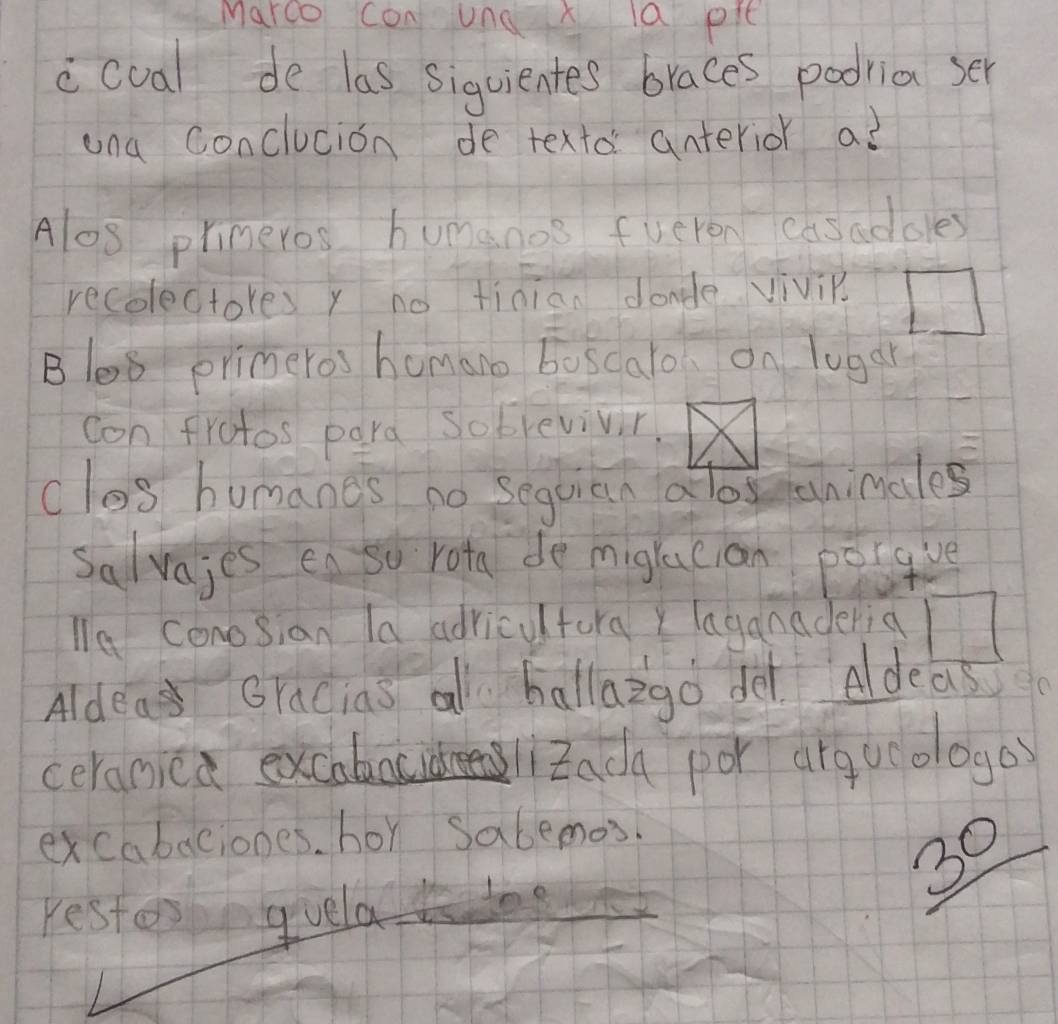 Marco con una x la
¿cual de las siguientes braces podria ser
una conclución de texto anterior a?
A los primeros humanos fueron casadoles
recolectores y no tinian donde vivir.
B los primeros humano buscaron on lugar
con frotos para sobrevivir.
C los humanos no seguian a los animales
salvajes en su rota de migracian porque
lla conosian la adricultura y laganaderia
Aldeas Gracias al hallazgo del. Aldeas
ceramica lizada por arqueologos
excabaciones. hoy sabemos.
30
restos quela